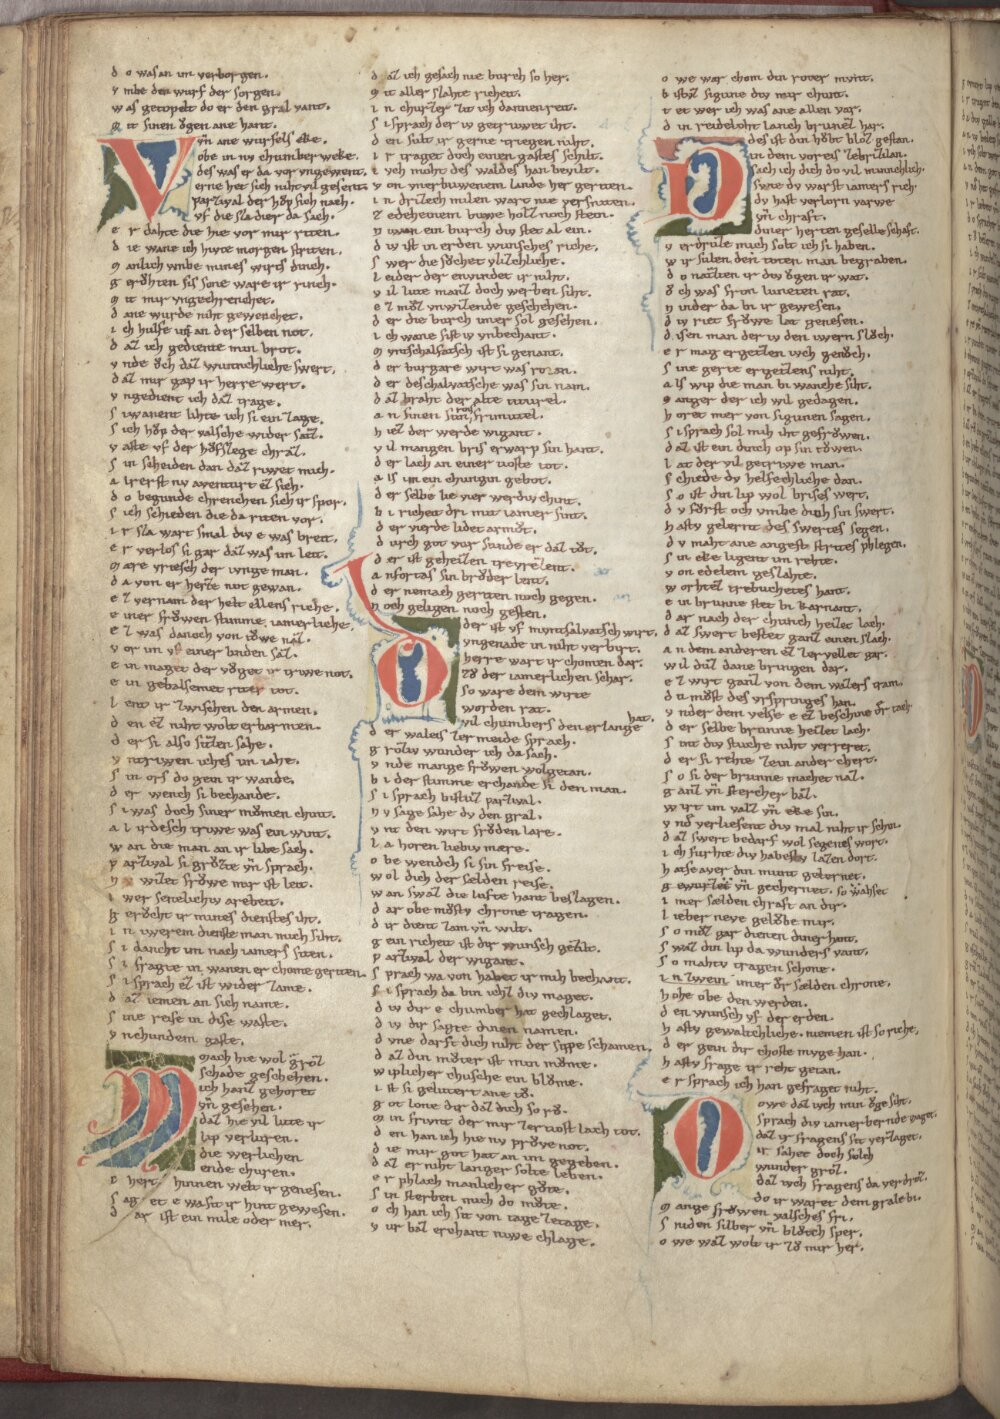 d o was an im verborgen.
v mbe den wurf der sorgen.
w as getopelt do er den gral vant.
m it sinen ögen ane hant.
Vn̄ ane wurfels eke.
obe in nv chumber weke.
des was er da vor vngewent.
erne het sich niht vil gesent.
parzival der höp sich nach.
vf die sla dier da sach.
e r dahte die hie vor mir riten.
d ie wane ich hivte morgen striten.
m anlich vmbe mines wirts dinch.
g eröhten sis sone ware ir rinch.
m it mir vngechrenchet.
d ane wurde niht gewenchet.
i ch hulfe in an der selben not.
d az ich gediente min brot.
v nde öch daz wunnechliche swert.
d az mir gap ir herre wert.
v ngedient ich daz trage.
s i wænent lihte ich si ein zage.
s ich höp der valsche wider saz.
v aste vf der höfslege chraz.
s in scheiden dan daz riwet mich.
a lrerst nv aventurt ez sich.
d o begunde chrenchen sich ir spor.
s ich schieden die da riten vor.
i r sla wart smal div e was breit.
e r verlos si gar daz was im leit.
m ære vriesch der ivnge man.
d a von er herze not gewan.
e z vernam der helt ellens riche.
e iner fröwen stimme iamerliche.
e z was danoch von towe naz.
v or im vf einer linden saz.
e in maget der vögete ir triwe not.
e in gebalsemet riter tot.
l ent ir zwischen den armen.
d en ez niht wolt erbarmen.
d er si also sitzen sahe.
v ntriwen iches im iahe.
s in ors do gein ir wande.
d er wench si bechande.
s i was doch siner mömen chint.
a l irdesch triwe was ein wint.
w an die man an ir libe sach.
p arzival si grözte vn̄ sprach.
fröwe mir ist leit.
i wer senelichiv arebeit.
b eröcht ir mines dienstes iht.
i n iwerem dienste man mich siht.
s i danchet im nach iamers siten.
s i fragte in wanen er chome geriten.
s i sprach ez ist wider zame.
d az iemen an sich name.
s ine reise in dise waste.
v nchundem gaste.
Mach hie wol gröz
schade geschehen.
ich hanz gehoret
vn̄ gesehen.
daz hie vil lute ir
lip verluren.
die werlichen
ende churen.
chert hinnen welt ir genesen.
s aget e wa sit ir hint gewesen.
d ar ist ein mile oder mer.
d az ich gesach nie burch so her.
m it aller slahte richeit.
i n churzer zit ich dannen reit.
s i sprach der iv getrivwet iht.
d en sult ir gerne triegen niht.
i r traget doch einen gastes schilt.
i vch möht des waldes han bevilt.
v on vnerbuwenem lande her geriten.
i n drizech milen wart nie versniten.
z e deheinem buwe holz noch stein.
n iwan ein burch div stet al ein.
d iv ist in erden wunsches riche.
s wer die söchet vlizchliche.
l eider der envindet ir niht.
v il lute manz doch werben siht.
e z möz vnwizende geschehen.
d er die burch imer sol gesehen.
i ch wane si ist iv vnbechant.
m vntschalfatsch ist si genant.
d er burgare wirt was rozan.
d er deschalvatsche was sin nam.
d az braht der alte titurel.
a n sinen sun roys frimutel.
h iez der werde wigant.
v il mangen bris erwarp sin hant.
d er lach an einer tioste tot.
a ls im ein chungin gebot.
d er selbe lie vier werdiv chint.
b i richeit dri mit iamer sint.
d er vierde lidet armöt.
d urch got vur sunde er daz töt.
d er ist geheizen trevrizent.
a nfortas sin bröder lent.
d er nemach geriten noch gegen.
n och geligen noch gesten.
Oder ist vf mvntsalvatsch wirt.
vngenade in niht verbirt.
herre wart ir chomen dar.
zö der iamerlichen schar.
so ware dem wirte
worden rat.
vil chumbers den er lange hat.
d er waleis zer meide sprach.
g röziv wunder ich da sach.
v nde mange fröwen wolgetan.
b i der stimme erchande si den man.
s i sprach bistuz parzival.
n v sage sahe dv den gral.
v nt den wirt fröden lare.
l a horen liebiv mære.
o be wendech si sin freise.
w ol dich der sælden reise.
w an swaz die lufte hant beslagen.
d ar obe möstv chrone tragen.
d ir dient zam vn̄ wilt.
g ein richeit ist dir wunsch gezilt.
p arzival der wigant.
s prach wa von habet ir mih bechant.
s i sprach da bin ichz div maget.
d iv dir e chumber hat gechlaget.
d iv dir sagte dinen namen.
d vne darft dich niht der sippe schamen.
d az din möter ist min möme.
w iplicher chusche ein blöme.
i st si gelutert ane tö.
g ot lone dir daz dich so rö.
m in frivnt der mir zer tiost lach tot.
d en han ich hie nv pröve not.
d ie mir got hat an im gegeben.
d az er niht langer solte leben.
e r phlach manlicher göte.
s in sterben mich do möte.
o ch han ich sit von tage ze tage.
v ur baz erchant niwe chlage.
o we war chom din roter mvnt.
b istvz sigune div mir chunt.
t et wer ich was ane allen var.
d in reideloht lanch brunez har.
Des ist din höbt bloz gestan.
in dem voreis zebrizilan.
sach ich dich do vil minnechlich.
swie dv warst iamers rich.
dv hast verlorn varwe
vn̄ chraft.
diner herten geselleschaft.
v erdruzte mich solt ich si haben.
w ir sulen den toten man begraben.
d o nazten ir div ögen ir wat.
ö ch was fron luneten rat.
n inder da bi ir gewesen.
d iv riet fröwe lat genesen.
d isen man der iv den iwern slöch.
e r mag ergetzen iuch genöch.
s ine gerte ergetzens niht.
a ls wip die man bi wanche siht.
m anger der ich wil gedagen.
h oret mer von sigunen sagen.
s i sprach sol mih iht gefröwen.
d az ist ein dinch op sin töwen.
l at der vil getrwe man.
s chiede dv helfechliche dan.
s o ist din lip wol brises wert.
d v först och vmbe dich sin swert.
h astv gelernt des swertes segen.
d v maht ane angest strites phlegen.
s in eke ligent im rehte.
v on edelem geslahte.
w orhtez trebuchetes hant.
e in brunne stet bi karnant.
d ar nach der chunch heizet lach.
d az swert bestet ganz einen slach.
a n dem anderen ez zervellet gar.
w il duz dane bringen dar.
e z wirt ganz von dem wazers tram.
d u möst des vrsprunges han.
v nder dem velse e ez beschine der tach.
d er selbe brunne heizet lach.
s int div stuche niht verreret.
d er si rehte zein ander chert.
s o si der brunne machet naz.
g anz vn̄ stercher baz.
w irt im valz vn̄ eke sin.
v nd verliesent div mal niht ir schin.
d az swert bedarf wol segenes wort.
i ch furhte div habestv lazen dort.
h ats aver din munt gelernet.
g ewurzet vn̄ gechernet. so wahset
i mer sælden chraft an dir.
l ieber neve gelöbe mir.
s o möz gar dienen diner hant.
s waz din lip da wunders vant.
s o mahtv tragen schone.
i nzwein imer der sælden chrone.
h ohe obe den werden.
d en wunsch vf der erden.
h astv gewaltechliche. niemen ist so riche,
d er gein dir choste mvge han.
h astv frage ir reht getan.
e r sprach ich han gefraget niht.
Owe daz ivch min öge siht.
sprach div iamerbernde maget.
daz ir fragens sit verzaget.
ir sahet doch solch
wunder gröz.
daz ivch fragens da verdröz.
do ir waret dem grale bi.
m ange fröwen valsches fri,
s niden silber vn̄ blötech sper.
o we waz wolt ir zö mir her.